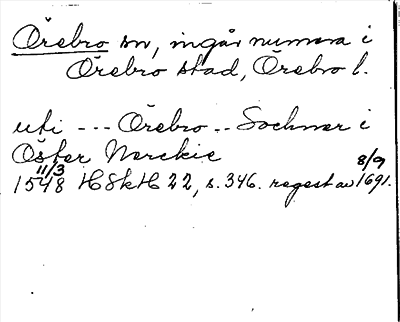 Örebro sn, ingår numera i
Örebro stad, Örebro l.
uti --- Örebro -- Sochnar i
Öster Nerckie
11/3 8/9
1548 HSkH 22, s. 346. regest av 1691.